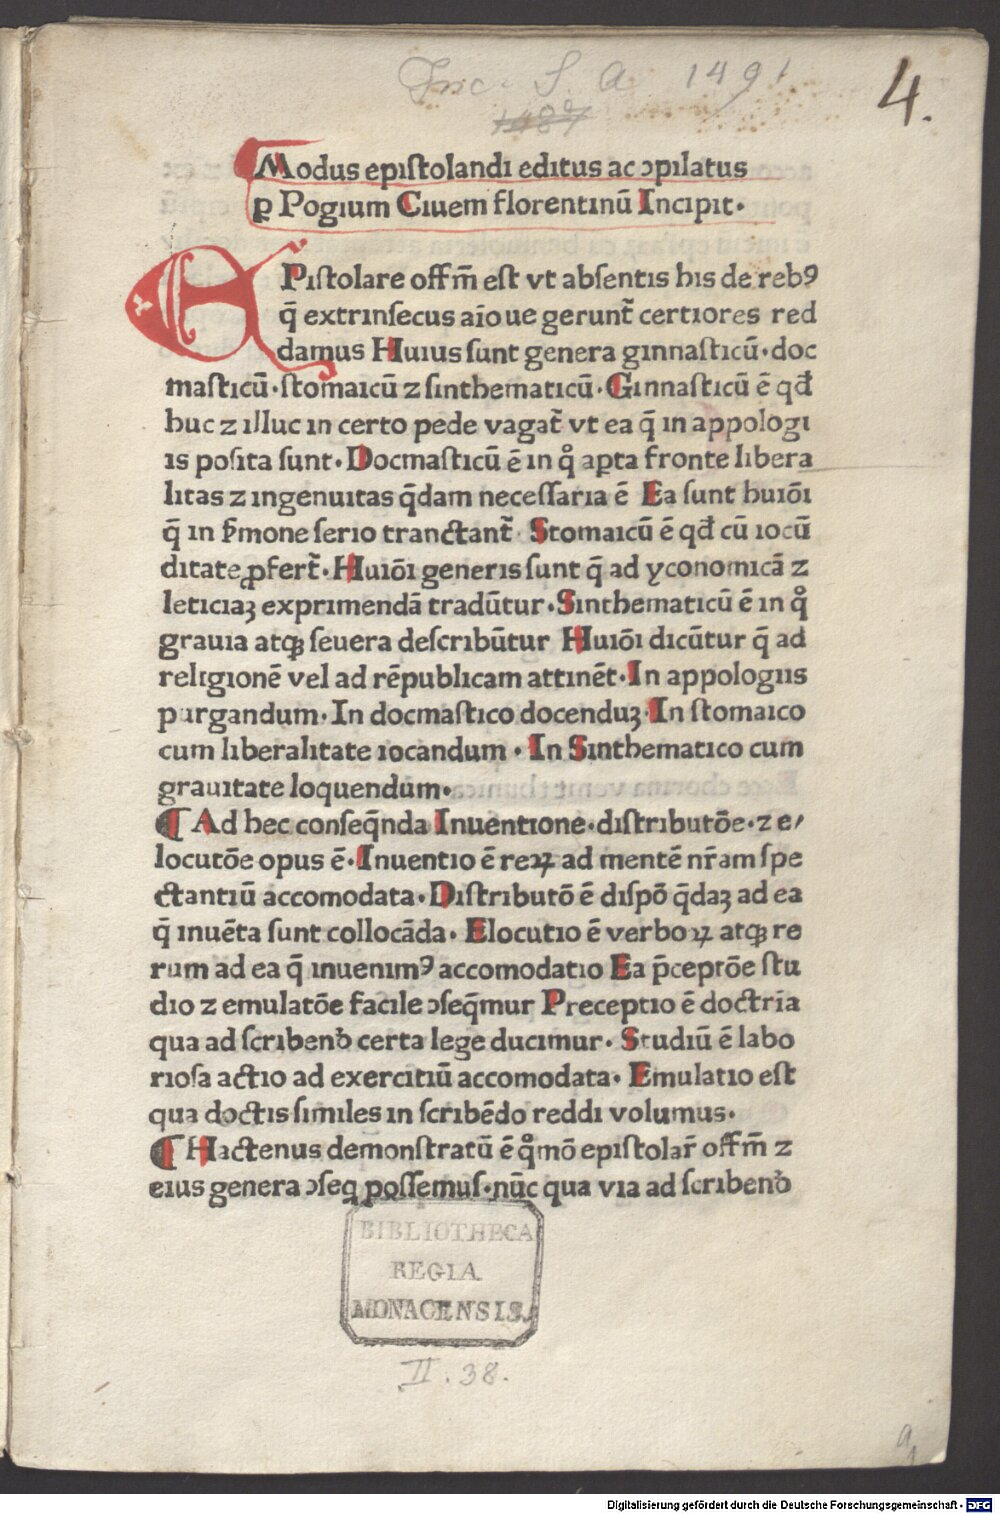 Inc. S. A. 1491
1487
4.
Modus epistolandi editus ac ɔpilatus
ꝑ Pogium Ciuem florentinū Incipit.
EPistolare offm̄ est vt absentis his de rebꝰ
q̄ extrinsecus aīo ue gerunt̄ certiores red
damus Huius sunt genera ginnasticū·doc
masticū·stomaicū ⁊ sinthematicū·Ginnasticū ē qđ
huc ⁊ illuc in certo pede vagat̄ vt ea q̄ in appologi
is posita sunt·Docmasticū ē in qͦ aꝑta fronte libera
litas ⁊ ingenuitas q̄dam necessaria ē Ea sunt huiōi
q̄ in p̄mone serio tranctant̄ Stomaicū ē qđ cū iocū
ditate ꝓfert̄·Huiōi generis sunt q̄ ad yconomicā ⁊
leticiaꝫ exprimendā tradūtur·Sinthematicū ē in qͦ
grauia atqꝫ seuera describūtur Huiōi dicūtur q̄ ad
religionē vel ad rēpublicam attinēt·In appologiis
purgandum·In docmastico docenduꝫ·In stomaico
cum liberalitate iocandum·In Sinthematico cum
grauitate loquendum·
¶ Ad hec conseq̄nda Inuentione·distributōe·⁊ e/
locutōe opus ē·Inuentio ē reꝝ ad mentē nr̄am spe
ctantiū accomodata·Distributō ē dispō q̄daꝫ ad ea
q̄ inuēta sunt collocāda·Elocutio ē verboꝝ atqꝫ re
rum ad ea q̄ inuenimꝰ accomodatio Ea p̄ceptōe stu
dio ⁊ emulatōe facile ɔseq̄mur Preceptio ē doctrīa
qua ad scribenð certa lege ducimur·Studiū ē labo
riosa actio ad exercitiū accomodata·Emulatio est
qua doctis similes in scribēdo reddi volumus·
¶ Hactenus demonstratū ē qͦmō epistolar̄ offm̄ ⁊
eius genera ɔseq possemus·nūc qua via ad scribenð
BIBLIOTHECA
REGIA
MONACENSIS.
II. 38.
a
1
Digitalisierung gefördert durch die Deutsche Forschungsgemeinschaft - DFG